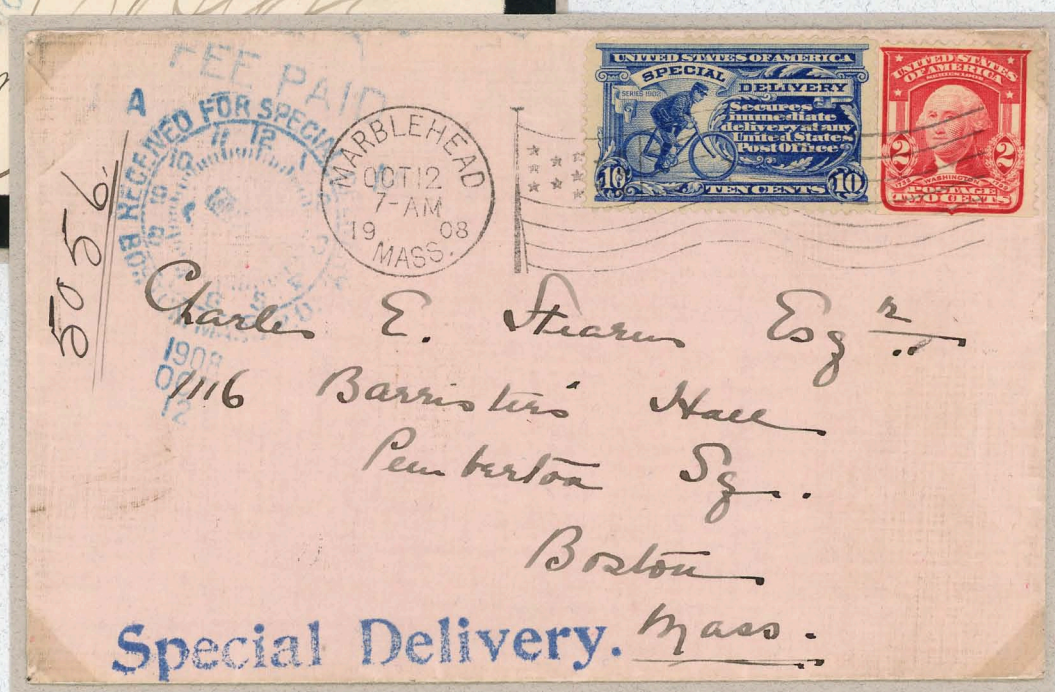 FEE PAID
A
RECEIVED FOR SPECIAL
11 12 1
10
9
1908
OCT
12
5056.
MARBLEHEAD
OCT 12
7-AM
19 08
MASS.
UNITED STATES OF AMERICA
SPECIAL DELIVERY
SERIES 1902
Secures
immediate
delivery at any
United States
Post Office
10 TEN CENTS 10
UNITED STATES
OF AMERICA
SERIES 1902
2 2
1732 WASHINGTON 1799
POSTAGE
TWO CENTS
Charles E. Stearns Esqr.
1116 Barristers Hall
Pemberton Sq.
Boston
Mass.
Special Delivery.